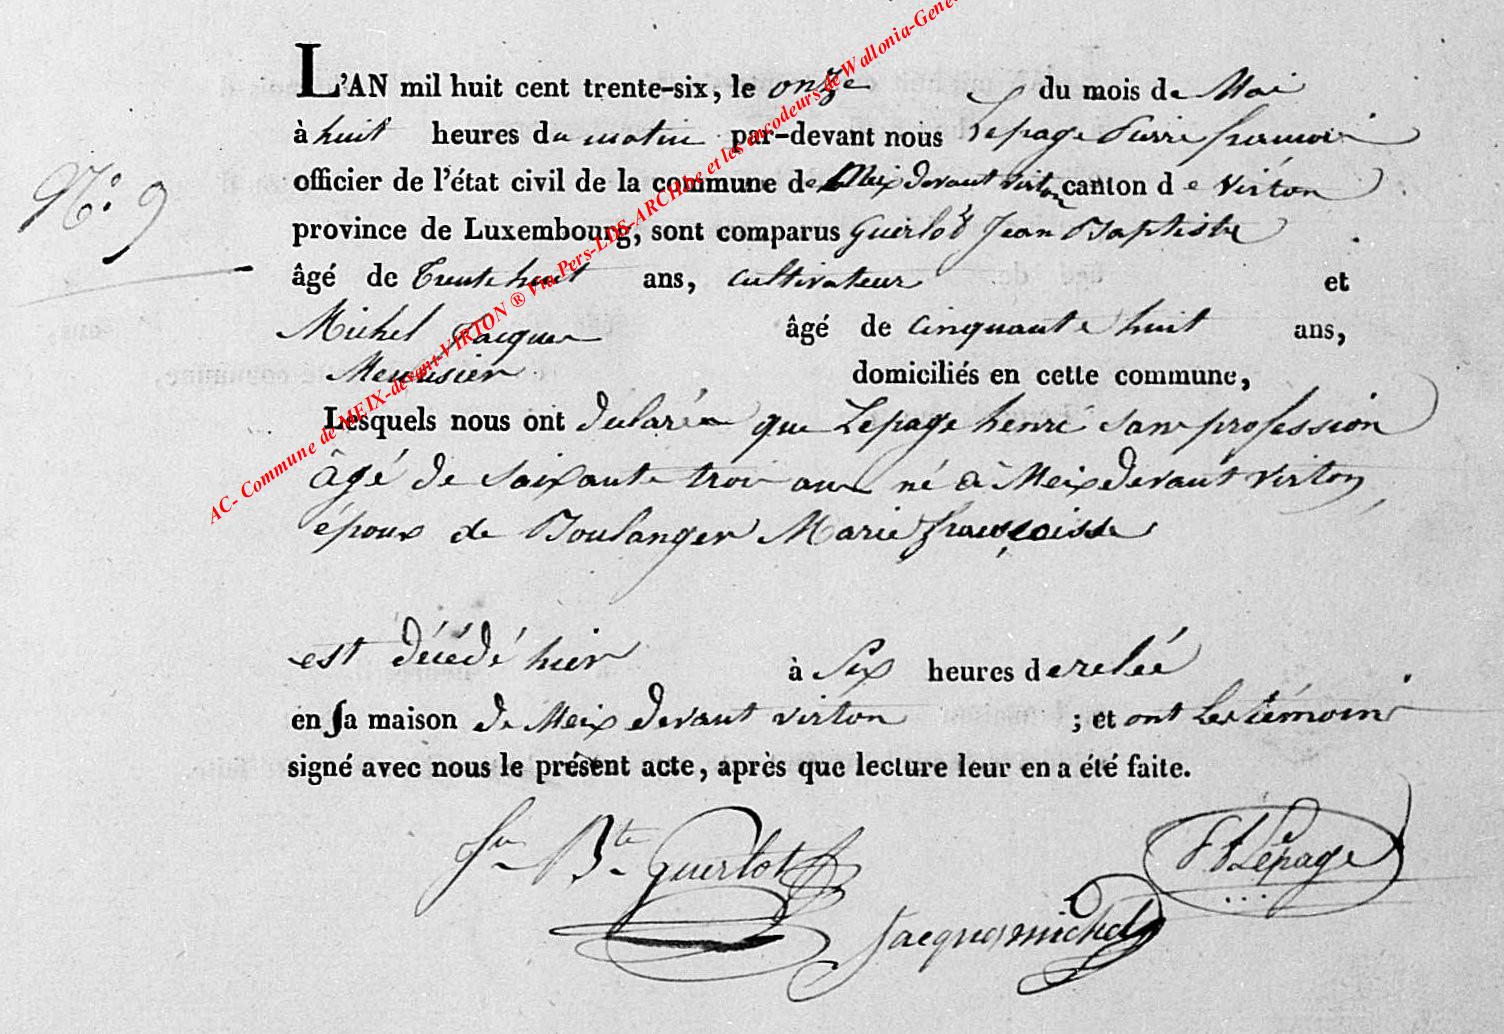 L'AN mil huit cent trente-six, le onze du mois de Mai
à huit heures du matin par-devant nous Lepage Pierre francois
officier de l'état civil de la commune de Meix devant virton canton de virton
province de Luxembourg, sont comparus Guerlot Jean Baptiste
âgé de Trente huit ans, cultivateur et
Michel Jacques âgé de cinquante huit ans,
Menuisier domiciliés en cette commune,
Lesquels nous ont declaré que Lepage henri sans profession
âgé de soixante trois ans né à Meix devant virton
époux de Boulanger Marie françoisse
est décédé hier à six heures de relée
en sa maison de Meix devant virton ; et ont les témoins
signé avec nous le présent acte, après que lecture leur en a été faite.
N.° 9
Jn Bte Guerlot
Lepage
Jacques michel
AC- Commune de MEIX-devant-VIRTON ® Via Pers-LDS-ARCHbe et les encodeurs de Wallonia-Gene